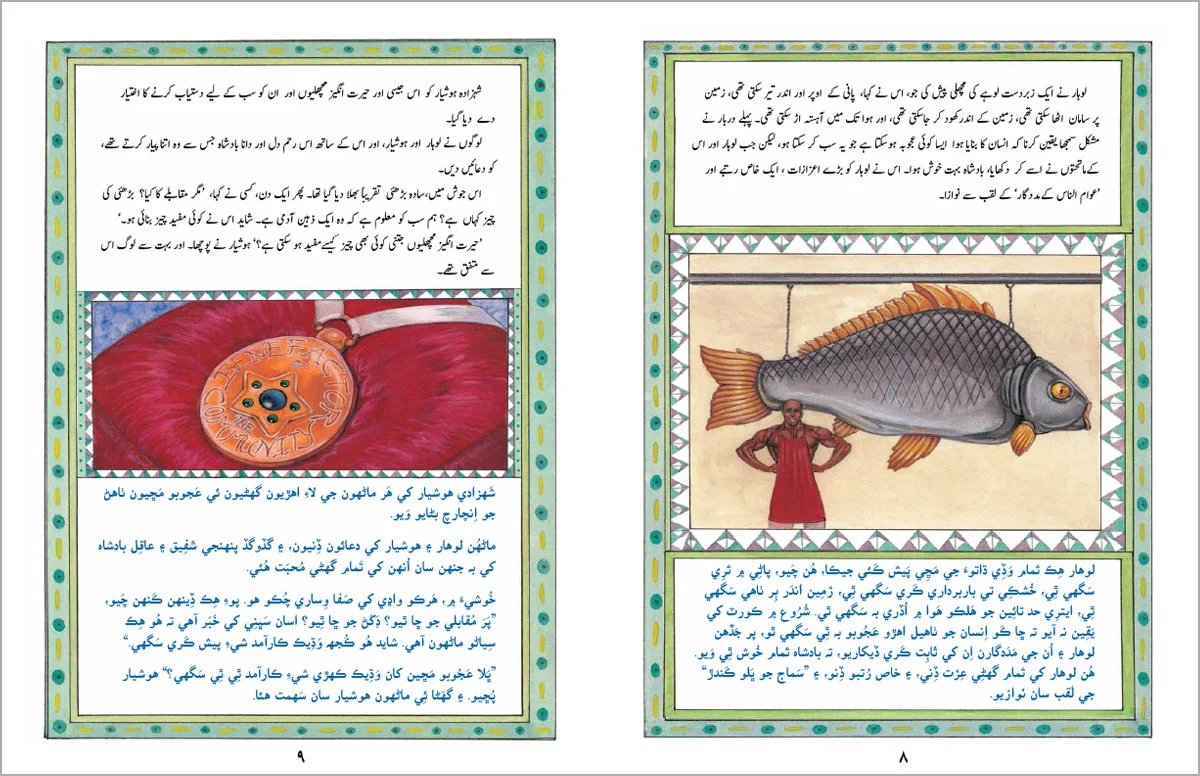 لوہار نے ایک زبردست لوہے کی مچھلی پیش کی جو، اس نے کہا، پانی کے اوپر اور اندر تیر سکتی تھی، زمین
پر سامان اٹھا سکتی تھی، زمین کے اندر کھود کر جا سکتی تھی، اور ہوا تک میں آہستہ اڑ سکتی تھی۔ پہلے دربار نے
مشکل سمجھا یقین کرنا کہ انسان کا بنایا ہوا ایسا کوئی عجوبہ ہو سکتا ہے جو یہ سب کر سکتا ہو، لیکن جب لوہار اور اس
کے ماتحتوں نے اسے کر دکھایا، بادشاہ بہت خوش ہوا۔ اس نے لوہار کو بڑے اعزازات ، ایک خاص رتبے اور
’عوام الناس کے مددگار‘ کے لقب سے نوازا۔
لوهار هِڪ تَمام وَڏِي ڌاتوءَ جي مَڇِي پَيش ڪَئي جيڪا، هُن چَيو، پاڻِي ۾ تَرِي
سَگهي ٿِي، خُشڪِي تي باربرداري ڪَري سَگهي ٿِي، زَمِين اَندَر بِر ٺاهي سَگهي
ٿِي، ايتري حَد تائِين جو هَلڪو هَوا ۾ اُڏَري بہ سَگهي ٿِي. شُرُوع ۾ ڪورٽ کي
يَقِين نہ آيو تہ ڇا ڪو اِنسان جو ٺاهيل اهڙو عَجُوبو بہ ٿِي سَگهي ٿو، پر جَڏهِن
لوهار ۽ اُن جي مَدَدگارن اِن کي ثابِت ڪَري ڏيکاريو، تہ بادشاه تَمام خُوش ٿِي وَيو.
هُن لوهار کي تَمام گهڻِي عِزّت ڏِني، ۽ خاص رُتبو ڏِنو، ۽ ”سَماج جو ڀَلو ڪَندڙ“
جي لَقَب سان نَوازيو.
۸
شہزادہ ہوشیار کو اس جیسی اور حیرت انگیز مچھلیوں اور ان کو سب کے لیے دستیاب کرنے کا اختیار
دے دیا گیا۔
لوگوں نے لوہار اور ہوشیار، اور اس کے ساتھ اس رحم دل اور دانا بادشاہ جس سے وہ اتنا پیار کرتے تھے،
کو دعائیں دیں۔
اس جوش میں، سادہ بڑھئی تقریباً بھلا دیا گیا تھا۔ پھر ایک دن، کسی نے کہا، ’مگر مقابلے کا کیا؟ بڑھئی کی
چیز کہاں ہے؟ ہم سب کو معلوم ہے کہ وہ ایک ذہین آدمی ہے۔ شاید اس نے کوئی مفید چیز بنائی ہو۔‘
’حیرت انگیز مچھلیوں جتنی کوئی بھی چیز کیسے مفید ہو سکتی ہے؟‘ ہوشیار نے پوچھا۔ اور بہت سے لوگ اس
سے متفق تھے۔
BENEFACTOR
OF
THE
COMMUNITY
شَهزادي هوشيار کي هَر ماڻهون جي لاءِ اهڙيون گهڻيون ئي عَجوبو مَڇيون ٺاهڻ
جو اِنچارج بڻايو وَيو.
ماڻهُن لوهار ۽ هوشيار کي دعائون ڏِنيون، ۽ گڏوگڏ پنهنجي شَفِيق ۽ عاقِل بادشاه
کي بہ جنهن سان اُنهن کي تَمام گهڻي مُحبَت هُئي.
خُوشيءَ ۾، هَرڪو واڍي کي صَفا وِساري چُڪو هو. پوءِ هِڪ ڏِينهن ڪَنهن چَيو،
”پَر مُقابلي جو ڇا ٿيو؟ ڊکڻ جو ڇا ٿِيو؟ اسان سَڀني کي خَبَر آهي تہ هُو هِڪ
سِياڻو ماڻهون آهي. شايد هُو ڪُجهہ وَڌِيڪ ڪارآمد شيءِ پيش ڪَري سَگهي.“
”ڀَلا عَجُوبو مَڇين کان وَڌِيڪ ڪهڙي شيءِ ڪارآمد ٿِي ٿِي سَگهي؟“ هوشيار
پُڇيو. ۽ گهڻا ئِي ماڻهون هوشيار سان سَهمت هئا.
۹